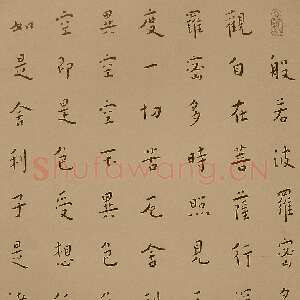 般若波羅蜜多
觀自在菩薩行
羅蜜多時照見
度一切苦厄舍
異空空不異色
空即是色受想
如是舍利子是諸
Shufawang.CN